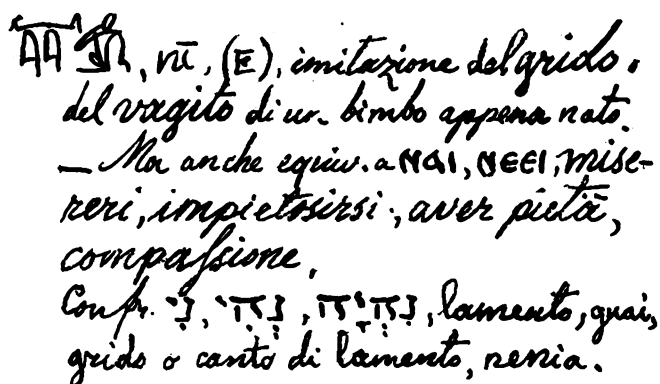 nīī, (E), imitazione del grido.
del vagito di un bimbo appena nato.
— Ma anche equiv. a ⲛⲁⲓ, ⲛⲉⲉⲓ, mise-
reri, impietosirsi, aver pietà,
compassione.
Confr. נִי, נְהִי, נְהִיָה, lamento, guai,
grido o canto di lamento, nenia.